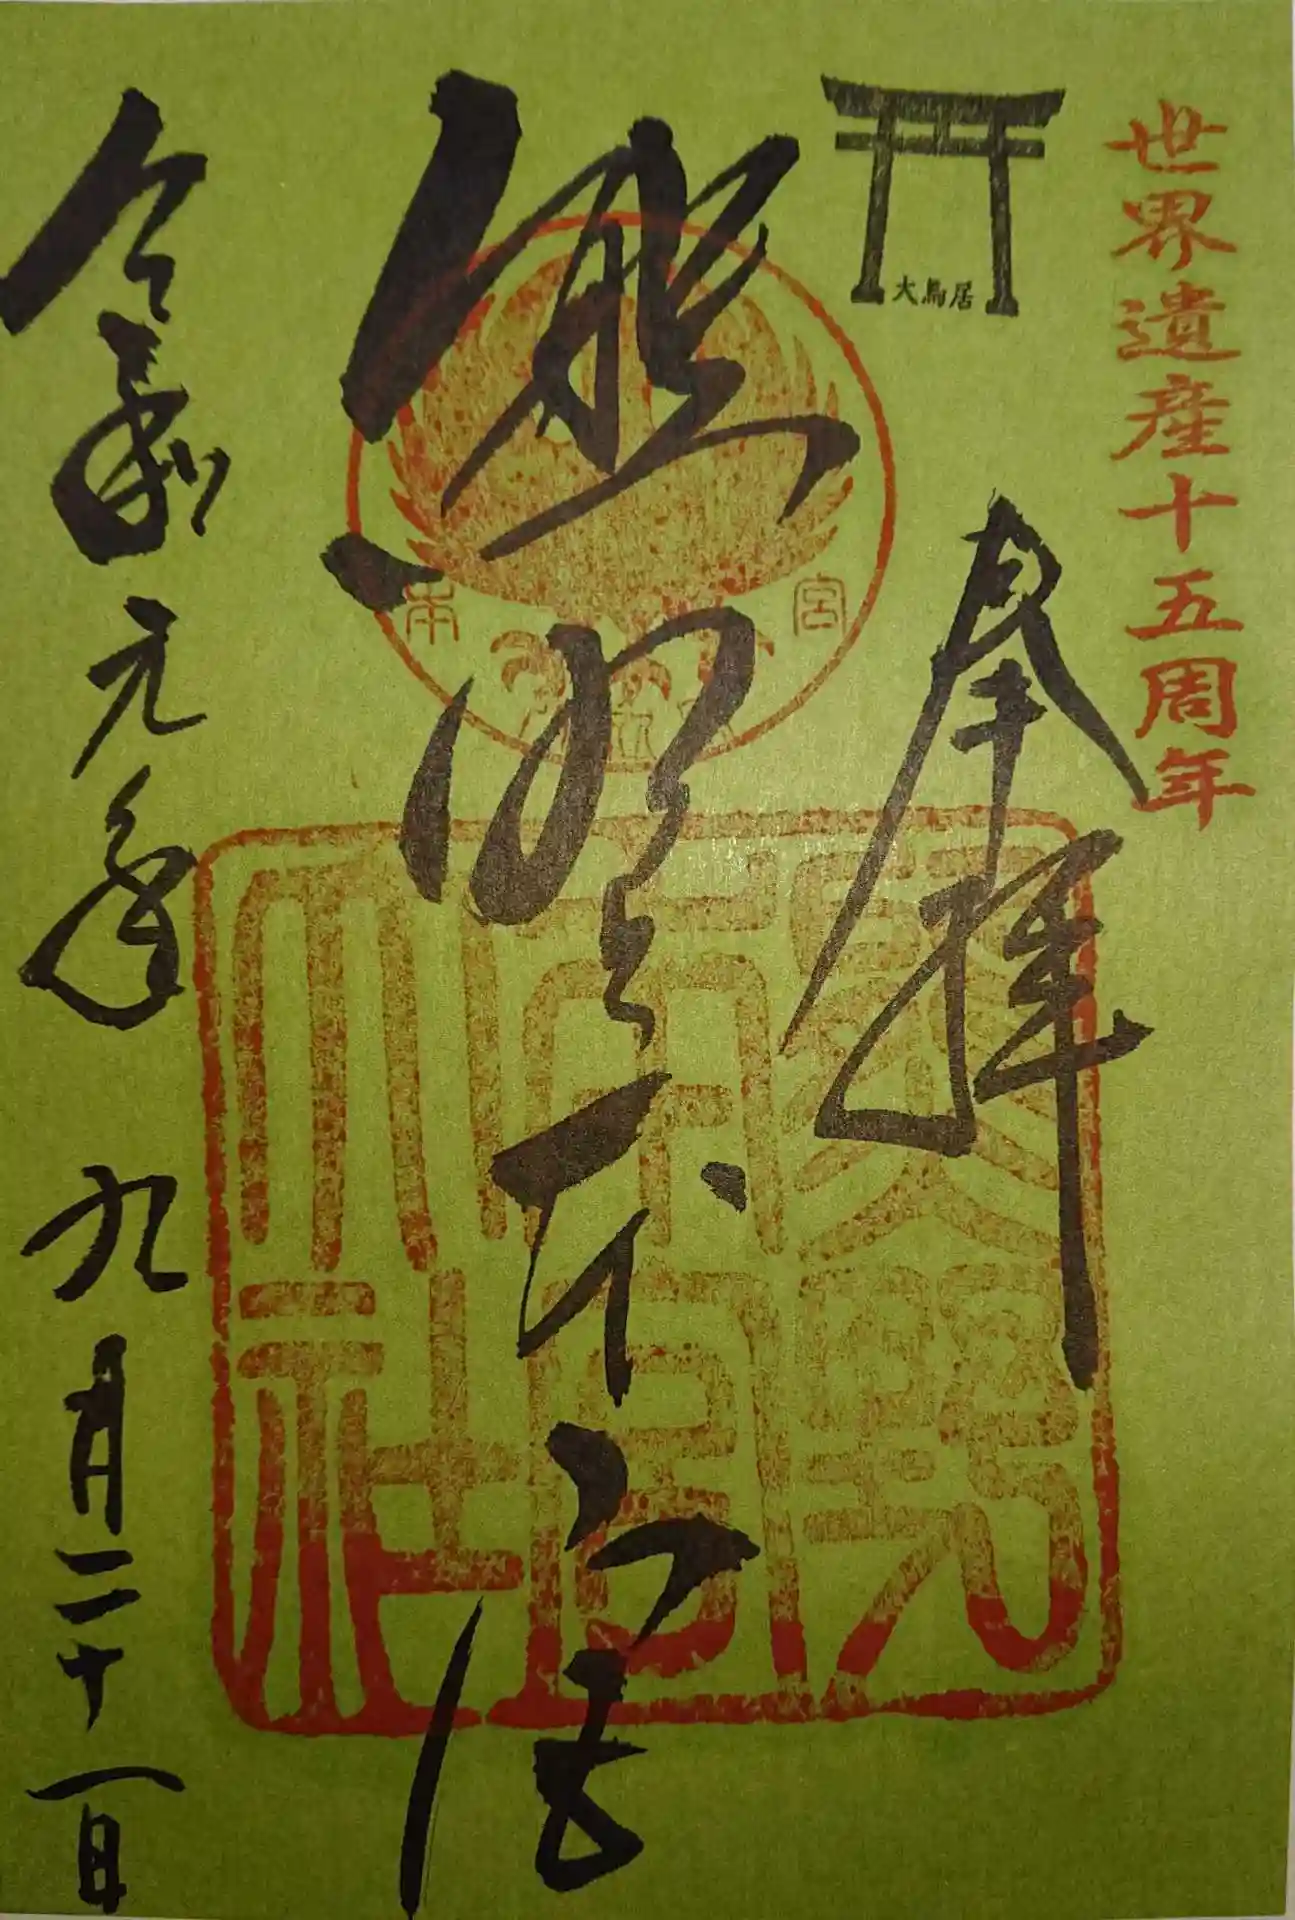 世界遺産十五周年
大鳥居
奉拝
熊野
本宮
熊野
本宮
大社
令和元年 九月二十一日